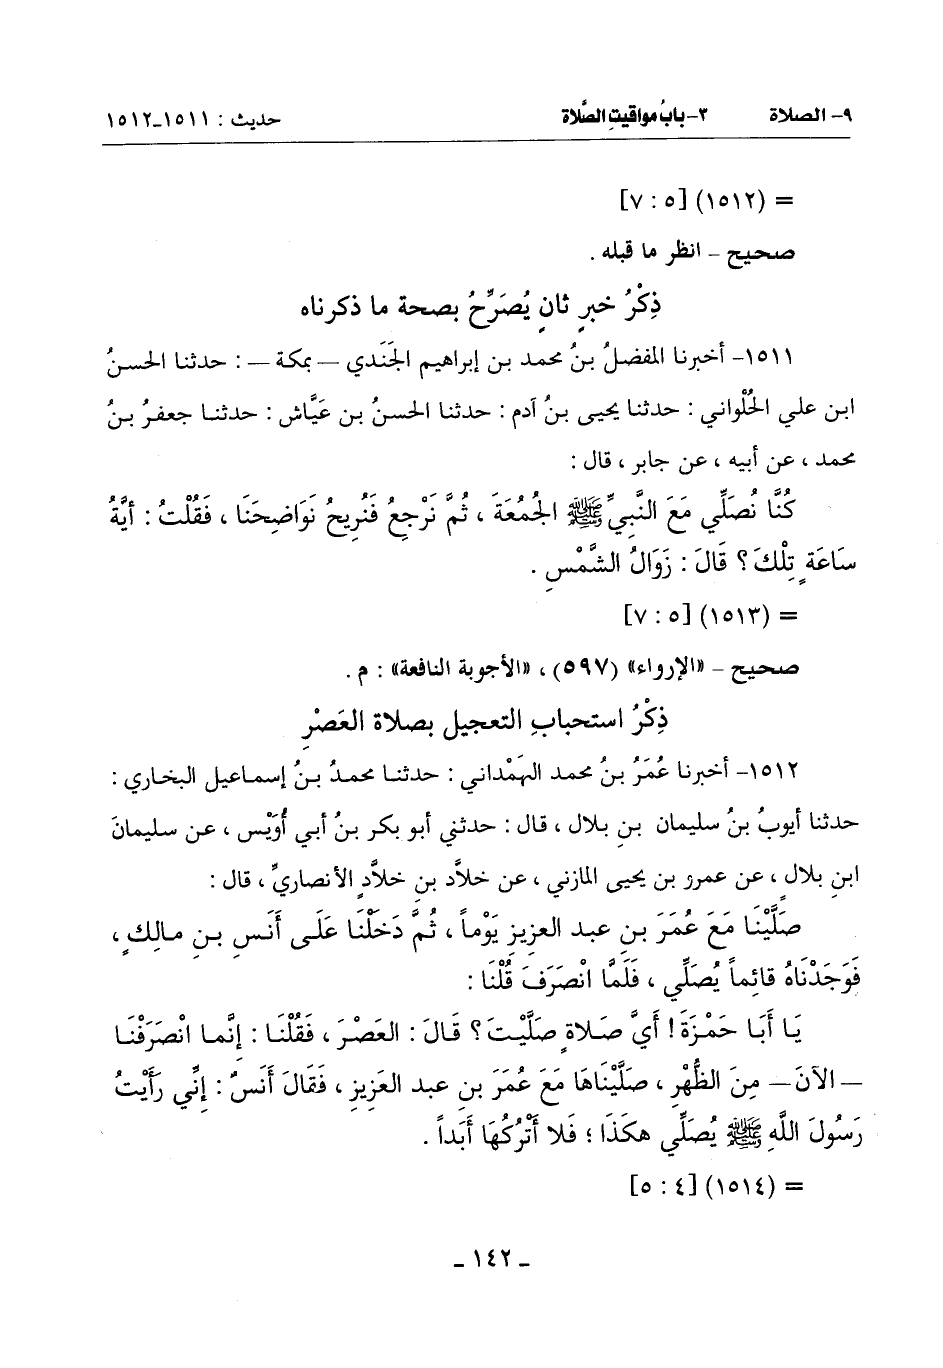 ٩- الصلاة ٣- بابُ مواقيتِ الصَّلاة حديث : ١٥١١-١٥١٢
= (١٥١٢) [٥ : ٧]
صحيح - انظر ما قبله .
ذِكْرُ خبرٍ ثانٍ يُصَرِّحُ بصحة ما ذكرناه
١٥١١- أخبرنا المفضلُ بنُ محمد بن إبراهيم الجَنَدي — بمكة — : حدثنا الحسنُ
ابن علي الحُلْواني : حدثنا يحيى بنُ آدم : حدثنا الحسنُ بن عَيَّاش : حدثنا جعفرُ بنُ
محمد ، عن أبيه ، عن جابر ، قال :
كُنَّا نُصَلِّي مَعَ النَّبِيِّ ﷺ الجُمُعَةَ ، ثُمَّ نَرْجِعُ فَنُرِيحُ نَوَاضِحَنَا ، فَقُلْتُ : أيَّةُ
سَاعَةٍ تِلْكَ ؟ قَالَ : زَوَالُ الشَّمْسِ .
= (١٥١٣) [٥ : ٧]
صحيح - «الإرواء» (٥٩٧) ، «الأجوبة النافعة» : م .
ذِكْرُ استحبابِ التعجيل بصلاة العَصْرِ
١٥١٢- أخبرنا عُمَرُ بنُ محمد الهَمْداني : حدثنا محمدُ بنُ إسماعيل البخاري :
حدثنا أيوبُ بنُ سليمان بنِ بلال ، قال : حدثني أبو بكر بنُ أبي أُوَيْس ، عن سليمانَ
ابنِ بلالٍ ، عن عمرو بن يحيى المازني ، عن خلاَّد بنِ خلاَّدٍ الأنصاريِّ ، قال :
صَلَّيْنَا مَعَ عُمَرَ بنِ عبد العزيزِ يَوْماً ، ثُمَّ دَخَلْنَا عَلَى أَنَسِ بنِ مالكٍ ،
فَوَجَدْنَاهُ قائِماً يُصَلِّي ، فَلَمَّا انْصَرَفَ قُلْنَا :
يَا أبَا حَمْزَةَ ! أيَّ صَلاةٍ صَلَّيْتَ ؟ قَالَ : العَصْرَ ، فَقُلْنَا : إنَّما انْصَرَفْنَا
— الآنَ — مِنَ الظُّهْرِ ، صَلَّيْنَاهَا مَعَ عُمَرَ بنِ عبد العزيزِ ، فَقَالَ أَنَسٌ : إنِّي رَأَيْتُ
رَسُولَ اللَّهِ ﷺ يُصَلِّي هكَذَا ؛ فَلا أَتْرُكُهَا أَبَداً .
= (١٥١٤) [٤ : ٥]
- ١٤٢ -